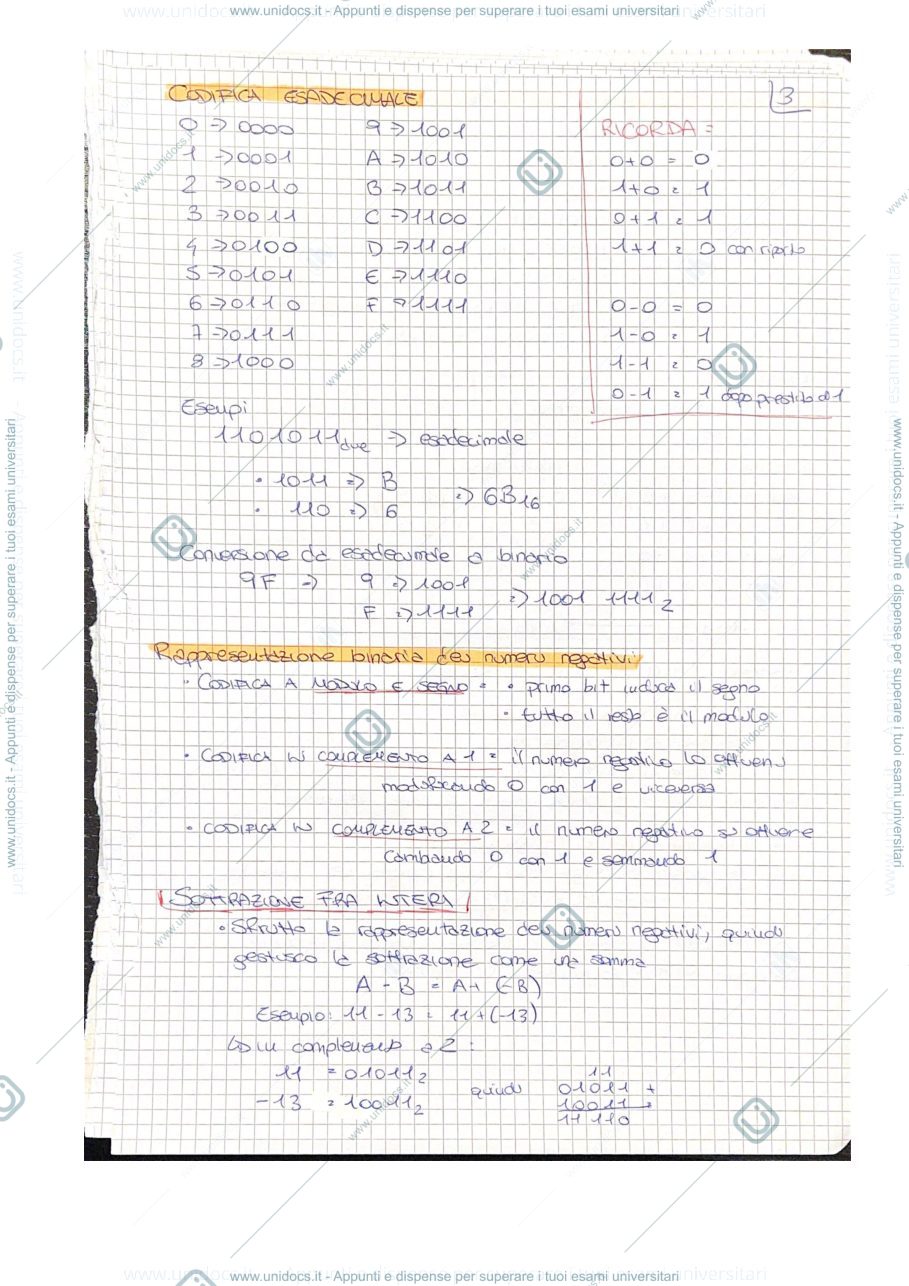 www.unidocs.it - Appunti e dispense per superare i tuoi esami universitari
3
CODIFICA ESADECIMALE
0 => 0000
1 => 0001
2 => 0010
3 => 0011
4 => 0100
5 => 0101
6 => 0110
7 => 0111
8 => 1000
9 => 1001
A => 1010
B => 1011
C => 1100
D => 1101
E => 1110
F => 1111
RICORDA =
0+0 = 0
1+0 = 1
0+1 = 1
1+1 = 0 con riporto
0-0 = 0
1-0 = 1
1-1 = 0
0-1 = 1 dopo prestito di 1
Esempi
1101011due => esadecimale
• 1011 => B
• 110 => 6
=> 6B16
Conversione da esadecimale a binario
9F => 9 => 1001
F => 1111
=> 1001 1111 2
Rappresentazione binaria dei numeri negativi
• CODIFICA A MODULO E SEGNO = • primo bit indica il segno
• tutto il resto è il modulo
• CODIFICA IN COMPLEMENTO A 1 = il numero negativo lo ottieni
modificando 0 con 1 e viceversa
• CODIFICA IN COMPLEMENTO A 2 = il numero negativo si ottiene
cambiando 0 con 1 e sommando 1
SOTTRAZIONE FRA INTERI
• Sfrutto la rappresentazione dei numeri negativi, quindi
gestisco la sottrazione come una somma
A - B = A + (-B)
Esempio: 11 - 13 = 11 + (-13)
↳ in complemento a 2 :
11 = 01011 2
-13 = 10011 2
quindi
11
01011 +
10011
11110
www.unidocs.it - Appunti e dispense per superare i tuoi esami universitari